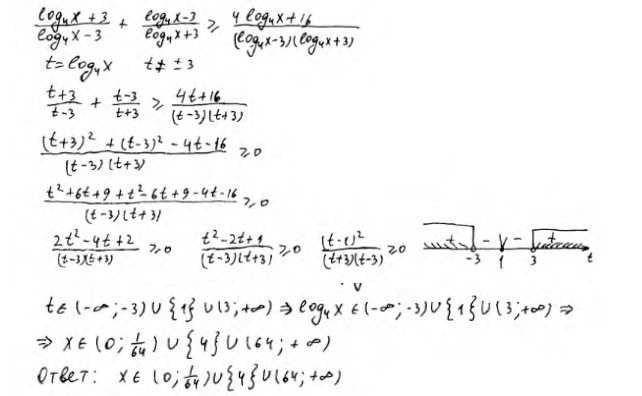 (log₄x + 3)/(log₄x - 3) + (log₄x - 3)/(log₄x + 3) ⩾ (4 log₄x + 16)/((log₄x - 3)(log₄x + 3))
t = log₄x t ≠ ± 3
(t+3)/(t-3) + (t-3)/(t+3) ⩾ (4t+16)/((t-3)(t+3))
((t+3)² + (t-3)² - 4t - 16)/((t-3)(t+3)) ⩾ 0
(t² + 6t + 9 + t² - 6t + 9 - 4t - 16)/((t-3)(t+3)) ⩾ 0
(2t² - 4t + 2)/((t-3)(t+3)) ⩾ 0 (t² - 2t + 1)/((t-3)(t+3)) ⩾ 0 (t-1)²/((t+3)(t-3)) ⩾ 0 + - - + -3 1 3 t
t ∈ (-∞; -3) ∪ {1} ∪ (3; +∞) ⇒ log₄x ∈ (-∞; -3) ∪ {1} ∪ (3; +∞) ⇒
⇒ x ∈ (0; 1/64) ∪ {4} ∪ (64; +∞)
Ответ: x ∈ (0; 1/64) ∪ {4} ∪ (64; +∞)